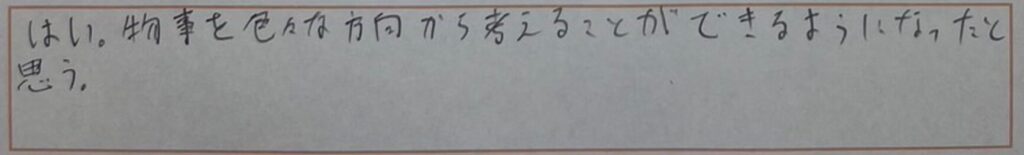 はい。物事を色々な方向から考えることができるようになったと
思う。